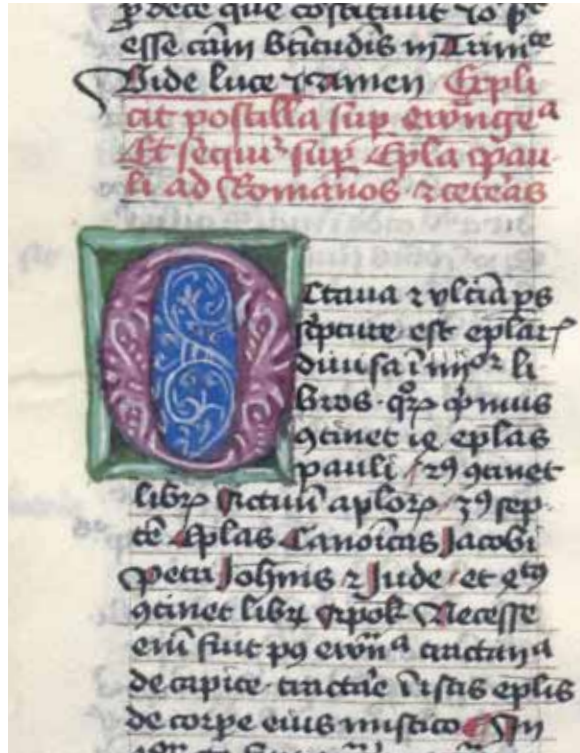 esse cām btitudīs in Trinitᵉ
Vide luce ⁊ amen Expli
cit postilla sup ewn̄geᵃ
Et sequiʳ sup Epl̄a pau
li ad Romanos ⁊ ceteᵃs
Octaua ⁊ vltīa ps
sc̄pture est eplaꝝ
diuisa ī iiijᵒʳ li
bros. qᵒꝝ pⁱmus
ꝯtinet eplas
pauli / 2ꝰ ꝯtinet
libꝝ Actuū aplorꝝ / 3ꝰ sep
tē Eplas Canōicas Jacobi
Petri Johīs ⁊ Jude / et 4ᵗꝰ
ꝯtinet libꝝ Apoꝉ Necesse
eni fuit pꝰ ewn̄ᵃ
de capite tractāe ī istis eplis
de corpe eius mistico In